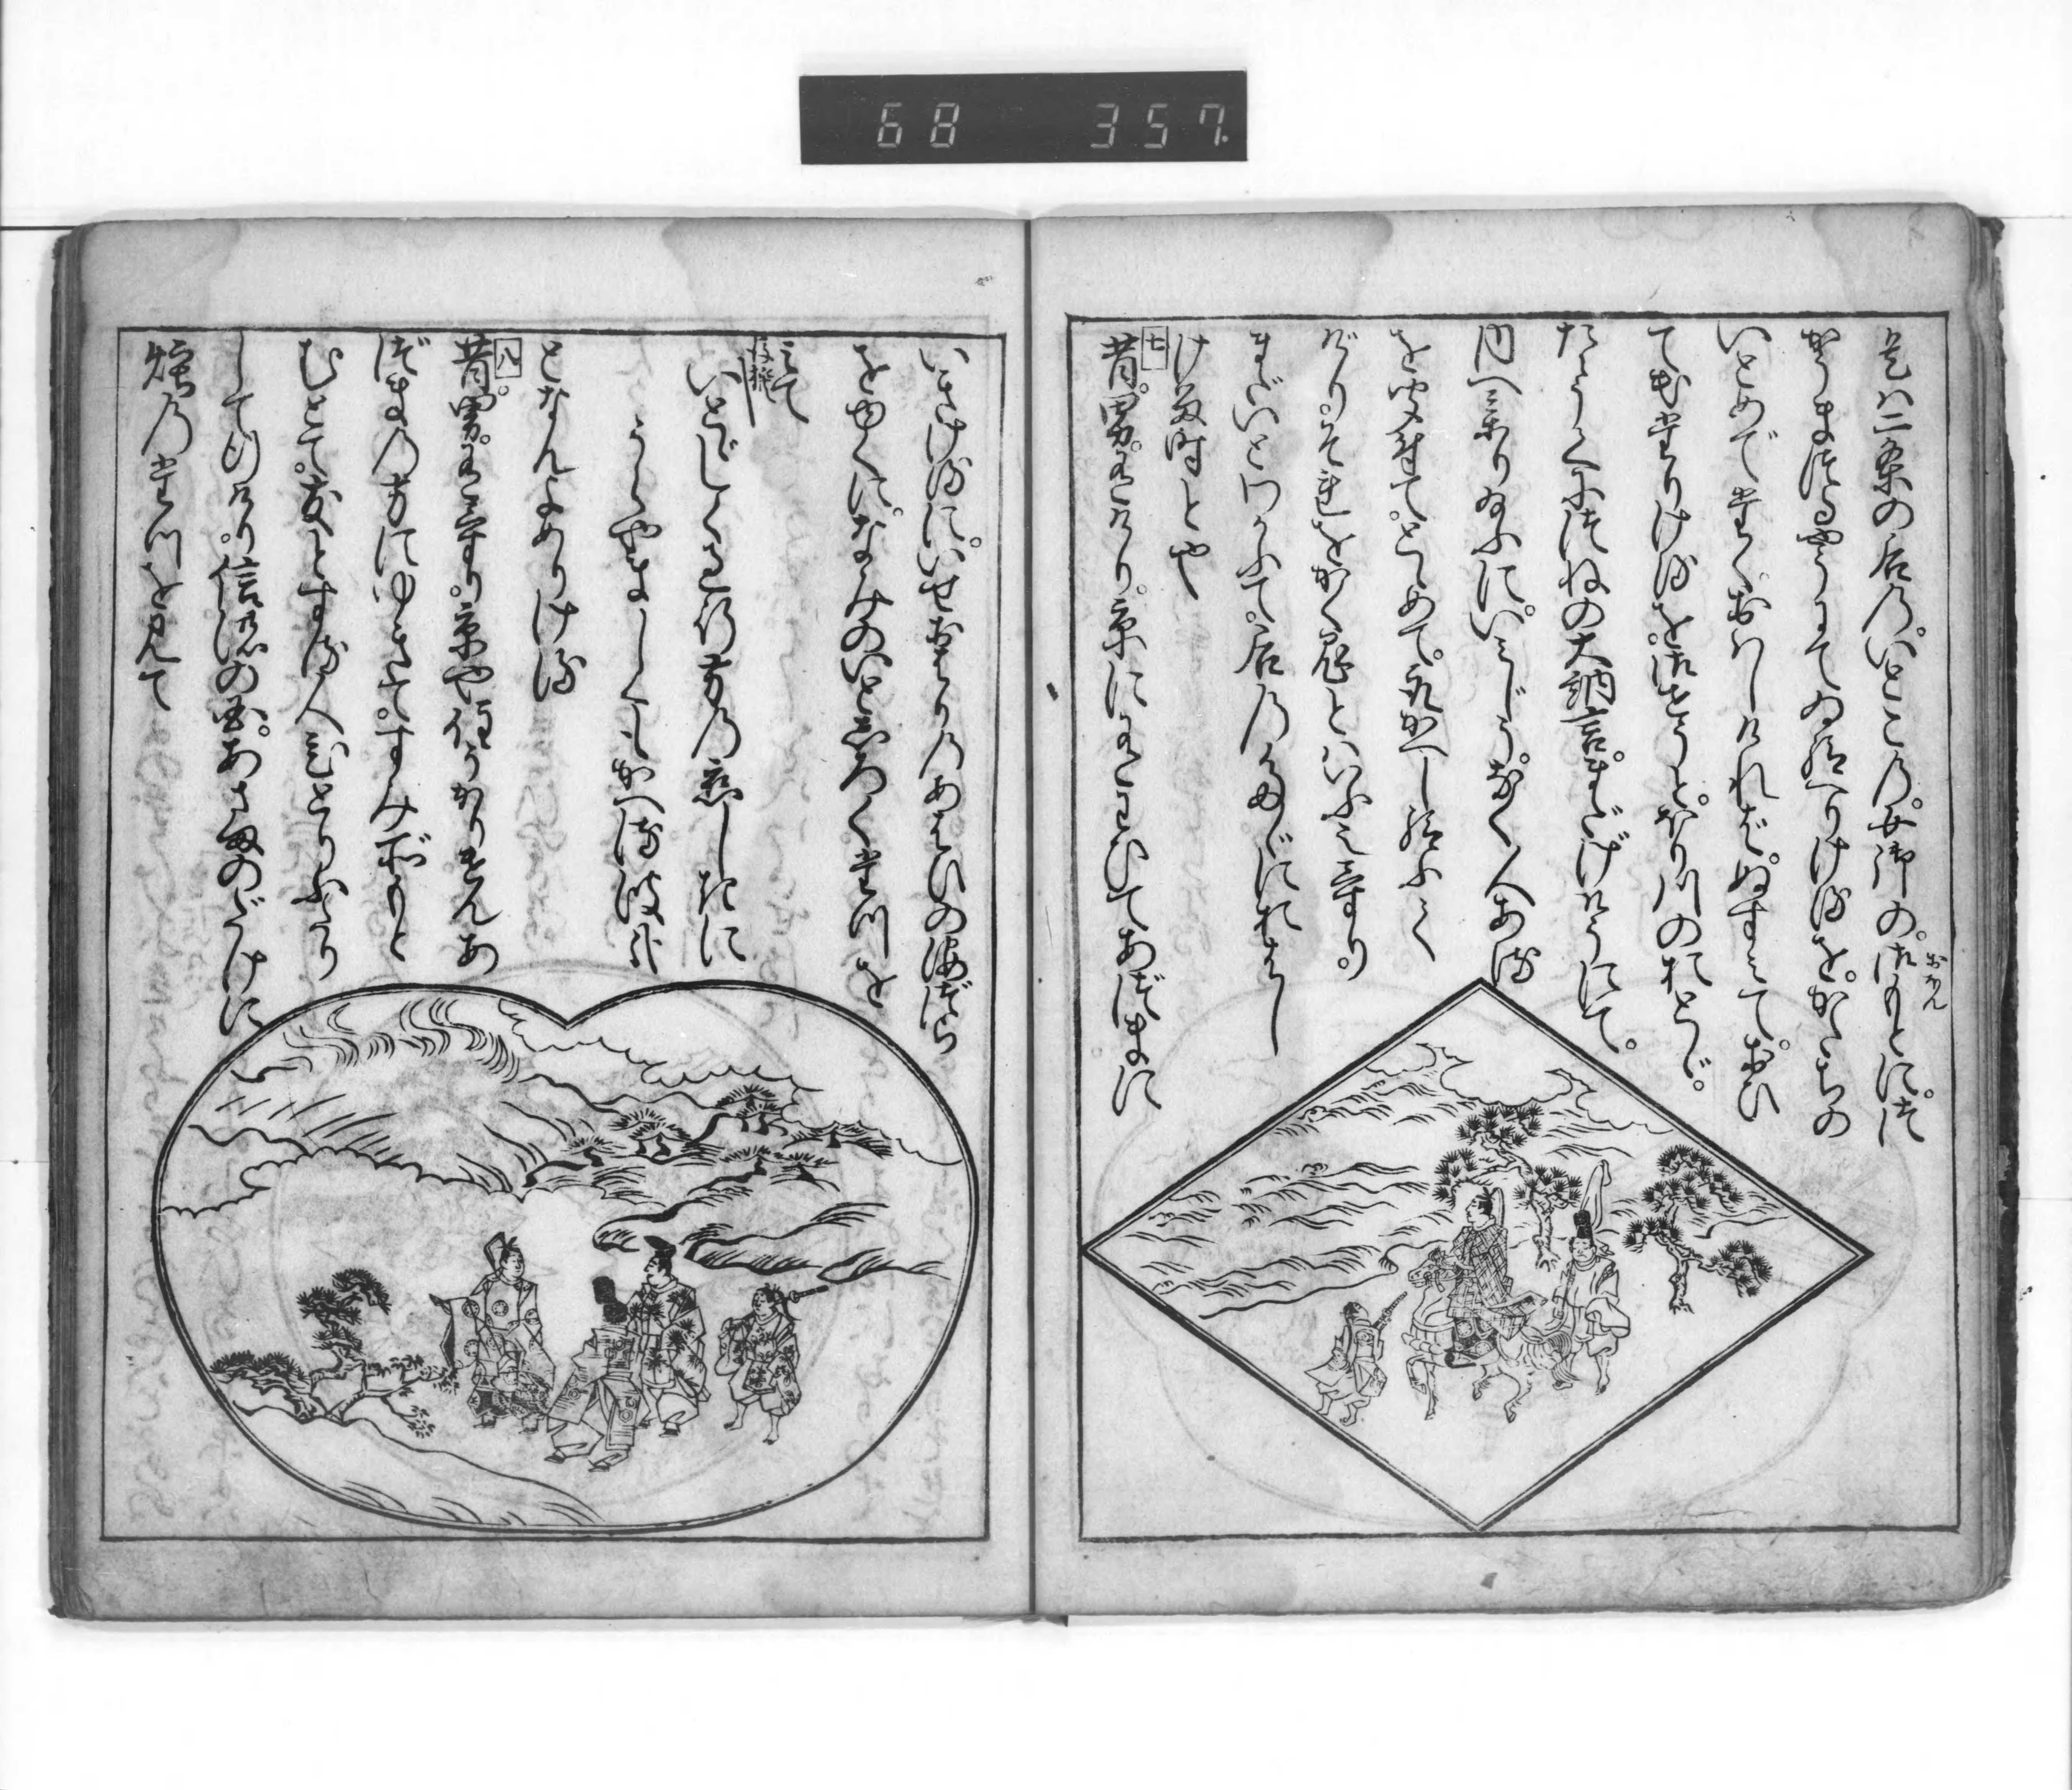 68 357
是は二条の后の。いとこの。女御の。御もとに。つ
おほん
かうまつるやうにてゐ給へりけるを。かたちの
いとめでたくおはしければ。ぬすみて。おひ
て出たりけるを。御せうと。ほり川のおとゞ。
たらうくにつねの大納言。まだげらうにて。
内へ参り給ふに。いみじう。なく人ある
を聞付て。とゞめて。取かへし給ふて
げり。それをかく鬼とはいふ也けり。
まだいとわかふて。后のたゞにおはし
ける時とや
七
昔。男有けり。京にありわびてあづまに
いきけるに。いせおはりのあはひの海づら
をゆくに。なみのいとしろくたつを
みて
後撰
いとゞしく過行方の恋しきに
うら山しくもかへる波哉
となんよめりける
八
昔。男有けり。京や住うかりけんあ
づまの方にゆきて。すみ所もと
むとて。友とする人ひとりふたり
して行けり。信濃の国。あさまのたけに
煙の立を見て